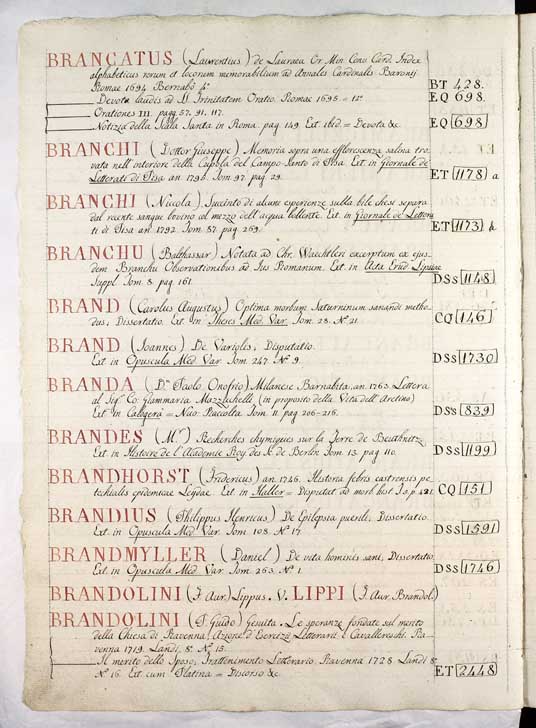 BRANCATUS (Laurentius) de Lauraea Or. Min. Conv. Card. Index
alphabeticus rerum et locorum memorabilium ad Annales Cardinalis Baronij
Romae 1694 Bernabò 4° BT 428.
Devotae laudes ad SS Trinitatem Oratio. Romae 1695 = 12° EQ 698.
Orationes III. pagg. 57. 91. 117.
Notizia della Scala Santa in Roma. pag. 149. Ext. ibid = Devota &c. EQ 698
BRANCHI (Dottor Giuseppe) Memoria sopra una efflorescenza salina tro
vata nell'interiore della Cupola del Campo Santo di Pisa. Ext. in Giornale de
Letterati di Pisa an 1794. Tom. 97. pag. 29. ET 1178 a
BRANCHI (Niccola). Succinto di alcune esperienze sulla bile ches' separa
dal recente sangue bovino col mezzo dell'acqua bollente. Ext. in Giornale de' Lettera
ti di Pisa an. 1792. Tom. 87. pag. 269. ET 1173 b
BRANCHU (Balthassar) Notata ad Chr. Waechtleri excerptum ex ejus
dem Branchu Observationibus ad Jus Romanum. Ext. in Acta Erud. Lipsiae
Suppl. Tom. 8. pag. 161. DSs 1148
BRAND (Carolus Augustus) Optima morbum Saturninum sanandi metho
dus, Dissertatio. Ext. in Theses Med. Var. Tom. 28. N° 21. CQ 146
BRAND (Joannes) De Variolis, Disputatio.
Ext. in Opuscula Med. Var. Tom. 247. N° 9. DSs 1730
BRANDA (Dn. Paolo Onofrio) Milanese Barnabita, an. 1763. Lettera
al Sigr. Co: Giammaria Mazzuchelli (in proposito della Vita dell'Aretino)
Ext. in Calogerà = Nuo. Raccolta. Tom. 11. pag. 206-216. DSs 839
BRANDES (Mr.) Recherches chymiques sur la Terre de Beuthnitz
Ext. in Histoire de l'Academie Roy. des Sc. de Berlin Tom. 13. pag. 110. DSs 1199
BRANDHORST (Fridericus) an. 1746. Historia febris castrensis pe
techialis epidemicae Leijdae. Ext. in Haller = Disputat. ad morb. hist. CQ 151
BRANDIUS (Philippus Henricus) De Epilepsia puerili, Dissertatio.
Ext. in Opuscula Med. Var. Tom. 108. N° 17. DSs 1591
BRANDMYLLER (Daniel) De vita hominis sani, Dissertatio
Ext. in Opuscula Med. Var. Tom. 263. N° 1. DSs 1746
BRANDOLINI (J. Aur.) Lippus. V. LIPPI (J. Aur. Brandol)
BRANDOLINI (P. Guido) Gesuita. Le speranze fondate sul merito
della Chiesa di Ravenna, Azione d'Esercizio Letterarii e Cavallereschi. Ra
venna 1719. Landi. 8°. N° 13.
Il merito dello Sposo, Trattenimento Letterario. Ravenna 1728. Landi 8°
N° 16. Ext. cum Platina = Discorso &c. ET 2448